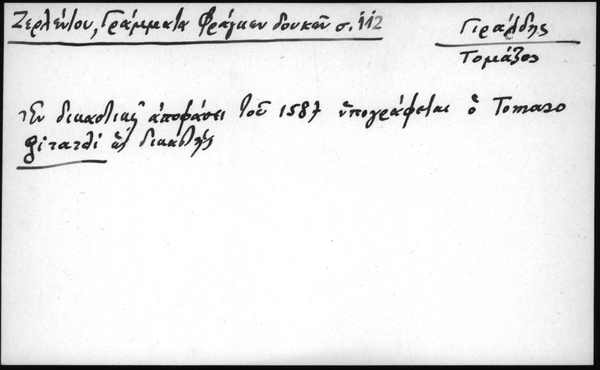 Ζερλέντου, Γράμματα Φράγκων δουκῶν σ. 112
Γιράλδης
Τομάζος
Ἐν δικαστικῇ ἀποφάσει τοῦ 1587 ὑπογράφεται ὁ Tomaso
girardi ὡς δικαστής